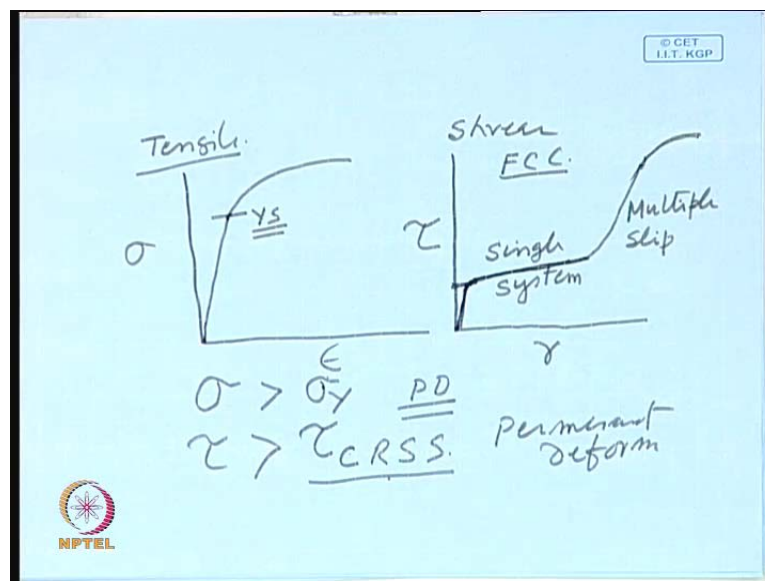 © CET
I.I.T. KGP
Tensile.
σ
YS
ϵ
Shrear
FCC.
τ
Single
system
Multiple
slip
γ
σ > σy PD
τ > τCRSS. Permenant
deform
NPTEL